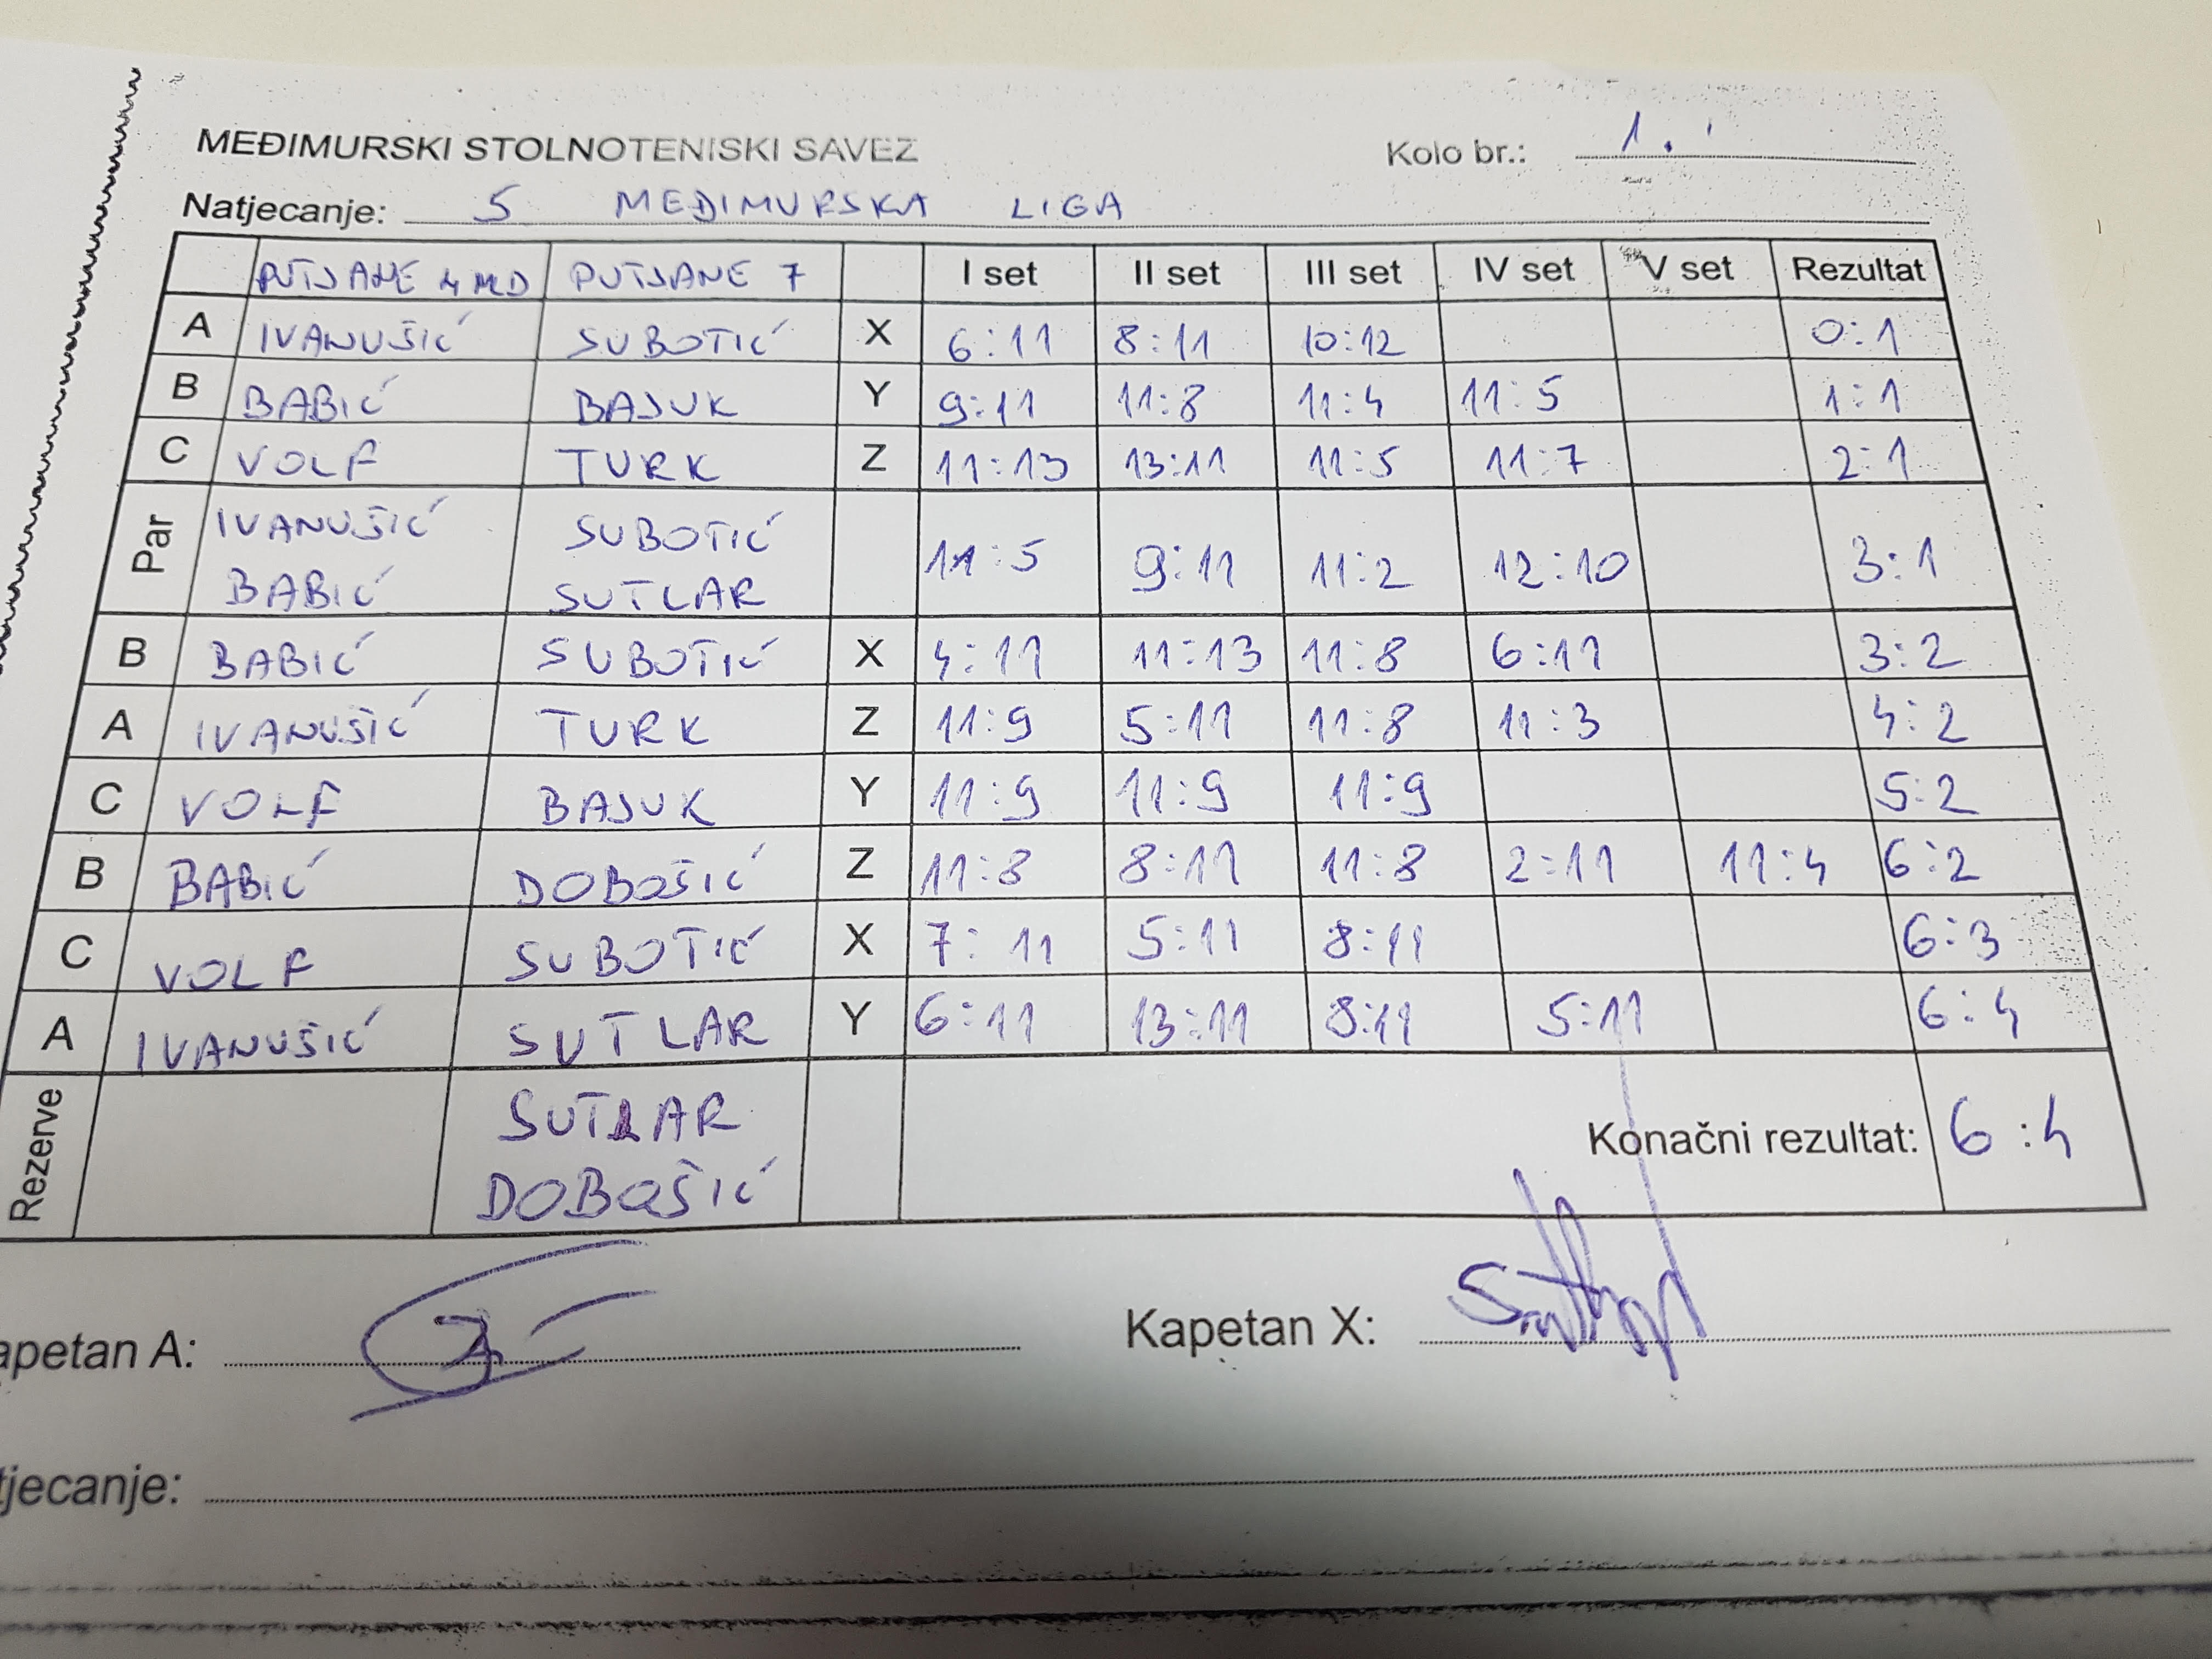 MEĐIMURSKI STOLNOTENISKI SAVEZ Kolo br.: 1.
Natjecanje: 5 MEĐIMURSKA LIGA
PUTJANE 4 MLD PUTJANE 7 I set II set III set IV set V set Rezultat
A IVANUŠIĆ SUBOTIĆ X 6:11 8:11 10:12 0:1
B BABIĆ BAJUK Y 9:11 11:8 11:4 11:5 1:1
C VOLF TURK Z 11:13 13:11 11:5 11:7 2:1
Par IVANUŠIĆ SUBOTIĆ
BABIĆ SUTLAR 11:5 9:11 11:2 12:10 3:1
B BABIĆ SUBOTIĆ X 4:11 11:13 11:8 6:11 3:2
A IVANUŠIĆ TURK Z 11:9 5:11 11:8 11:3 4:2
C VOLF BAJUK Y 11:9 11:9 11:9 5:2
B BABIĆ DOBOŠIĆ Z 11:8 8:11 11:8 2:11 11:4 6:2
C VOLF SUBOTIĆ X 7:11 5:11 8:11 6:3
A IVANUŠIĆ SUTLAR Y 6:11 13:11 8:11 5:11 6:4
Rezerve SUTLAR
DOBOŠIĆ Konačni rezultat: 6:4
apetan A: Kapetan X:
tjecanje: